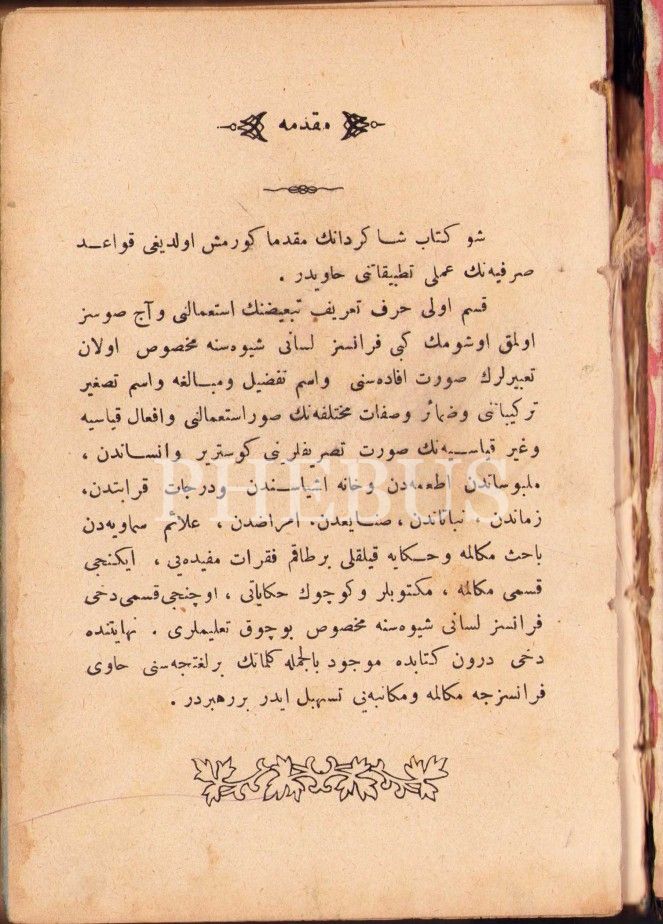 مقدمه
شو كتاب شاكردانك مقدما كورمش اولديغى قواعد
صرفيه‌نك عملى تطبيقاتنى حاويدر .
قسم اولى حرف تعريف تبعيضنك استعمالنى و آج صوسز
اولمق اوشومك كبى فرانسز لسانى شيوه‌سنه مخصوص اولان
تعبيرلرك صورت افاده‌سنى واسم تفضيل ومبالغه واسم تصغير
تركيباتنى وضمائر وصفات مختلفه‌نك صور استعمالنى وافعال قياسيه
وغير قياسيه‌نك صورت تصريفلرينى كوسترير وانساندن ،
ملبوساتدن اطعمه‌دن وخانه اشياسندن ودرجات قرابتدن،
زماندن ، نباتاتدن ، صنايعدن، امراضدن ، علائم سماويه‌دن
باحث مكالمه وحكايه قيلقلى برطاقم فقرات مفيده‌يى ، ايكنجى
قسمى مكالمه ، مكتوبلر وكوچوك حكاياتى ، اوچنجى قسمى دخى
فرانسز لسانى شيوه‌سنه مخصوص بوچوق تعليملرى . نهايتنده
دخى درون كتابده موجود بالجمله كلماتك برلغتجه‌سنى حاوى
فرانسزجه مكالمه ومكاتبه‌يى تسهيل ايدر بررهبردر .
PHEBUS